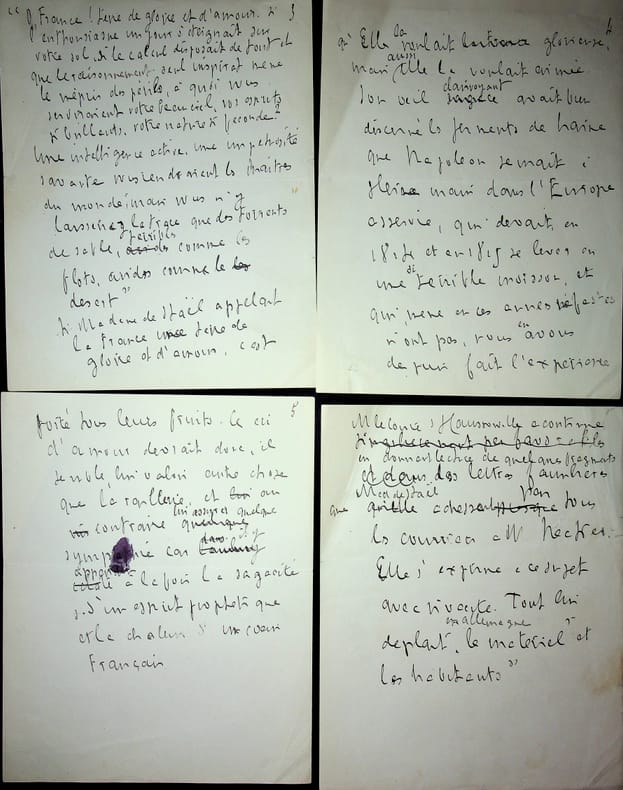 " O France ! terre de gloire et d'amour. Si 3
l'enthousiasme un jour s'éteignait sur
votre sol, si le calcul disposait de tout et
que le raisonnement seul inspirat meme
le mépris des périls, à quoi vous
serviraient votre beau ciel, vos esprits
si brillants, votre nature si féconde ?
Une intelligence active, une impetuosité
savante vous rendraient les maitres
du monde mais vous n'y
laisseriez la trace que des torrents
de sable, terribles comme les
flots, arides comme le
desert "
Si Madame de Staël appelait
la France terre de
gloire et d'amour, c'est
4
qu'Elle la voulait glorieuse,
mais Elle la voulait aussi aimée.
Son oeil clairvoyant avait bien
discerné les ferments de haine
que Napoleon semait à
pleine main dans l'Europe
asservie, qui devait en
1814 et en 1815 se lever en
une si terrible moisson, et
qui meme en ces années néfastes
n'ont pas, nous en avons
depuis fait l'experience
5
porté tous leurs fruits. Ce cri
d'amour devrait donc, il
semble, lui valoir autre chose
que la raillerie, et au
contraire lui assurer quelque
sympathie car dans
à la fois la sagacité
d'un esprit prophetique
et la chaleur d'un coeur
Français
M le Comte d'Haussonville a continué
en donnant lecture de quelques fragments
des lettres familières
que Mad de Staël adressait tous
les courriers à M Necker.
Elle s'exprime à ce sujet
avec vivacité. Tout lui
deplait en allemagne, " le materiel et
les habitants "